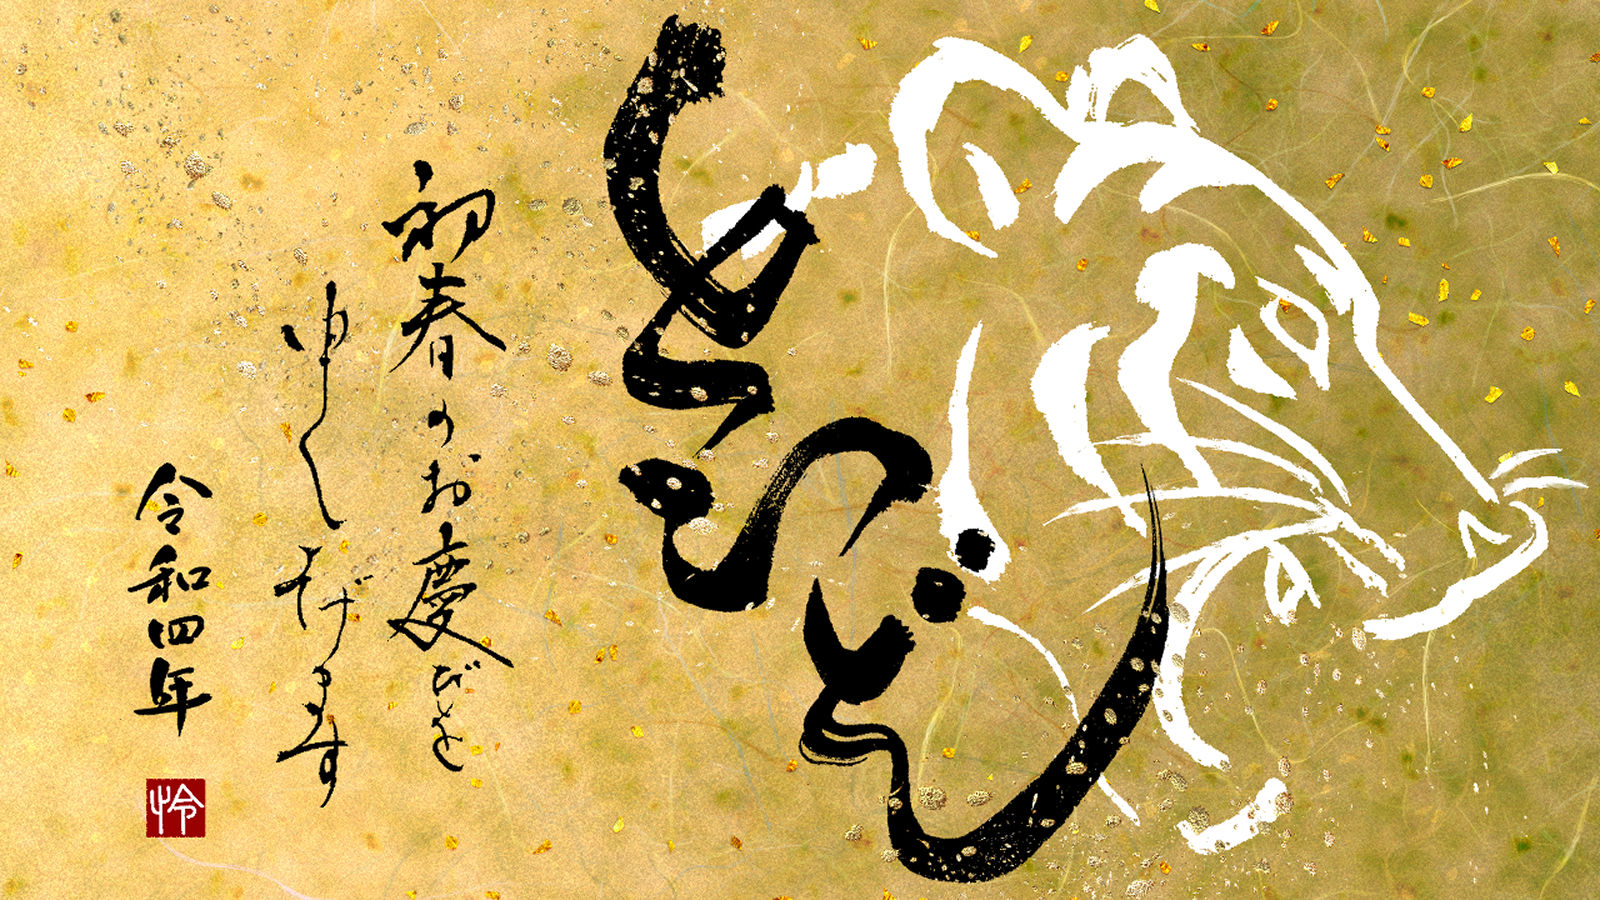 初春のお慶びを
申し上げます
令和四年
怜